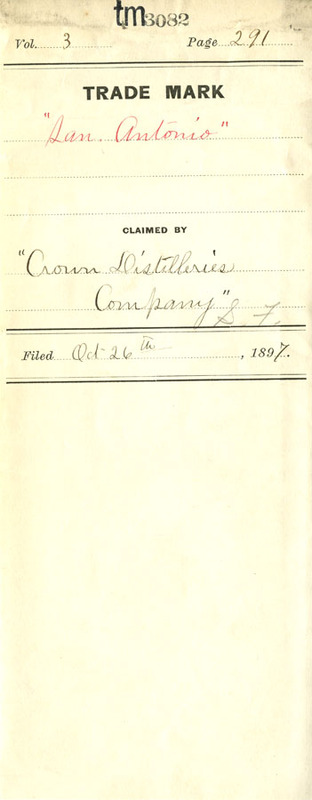 tm3082
Vol. 3 Page 291
TRADE MARK
"San. Antonio"
CLAIMED BY
"Crown Distilleries
Company" S. F.
Filed Oct 26th, 1897.